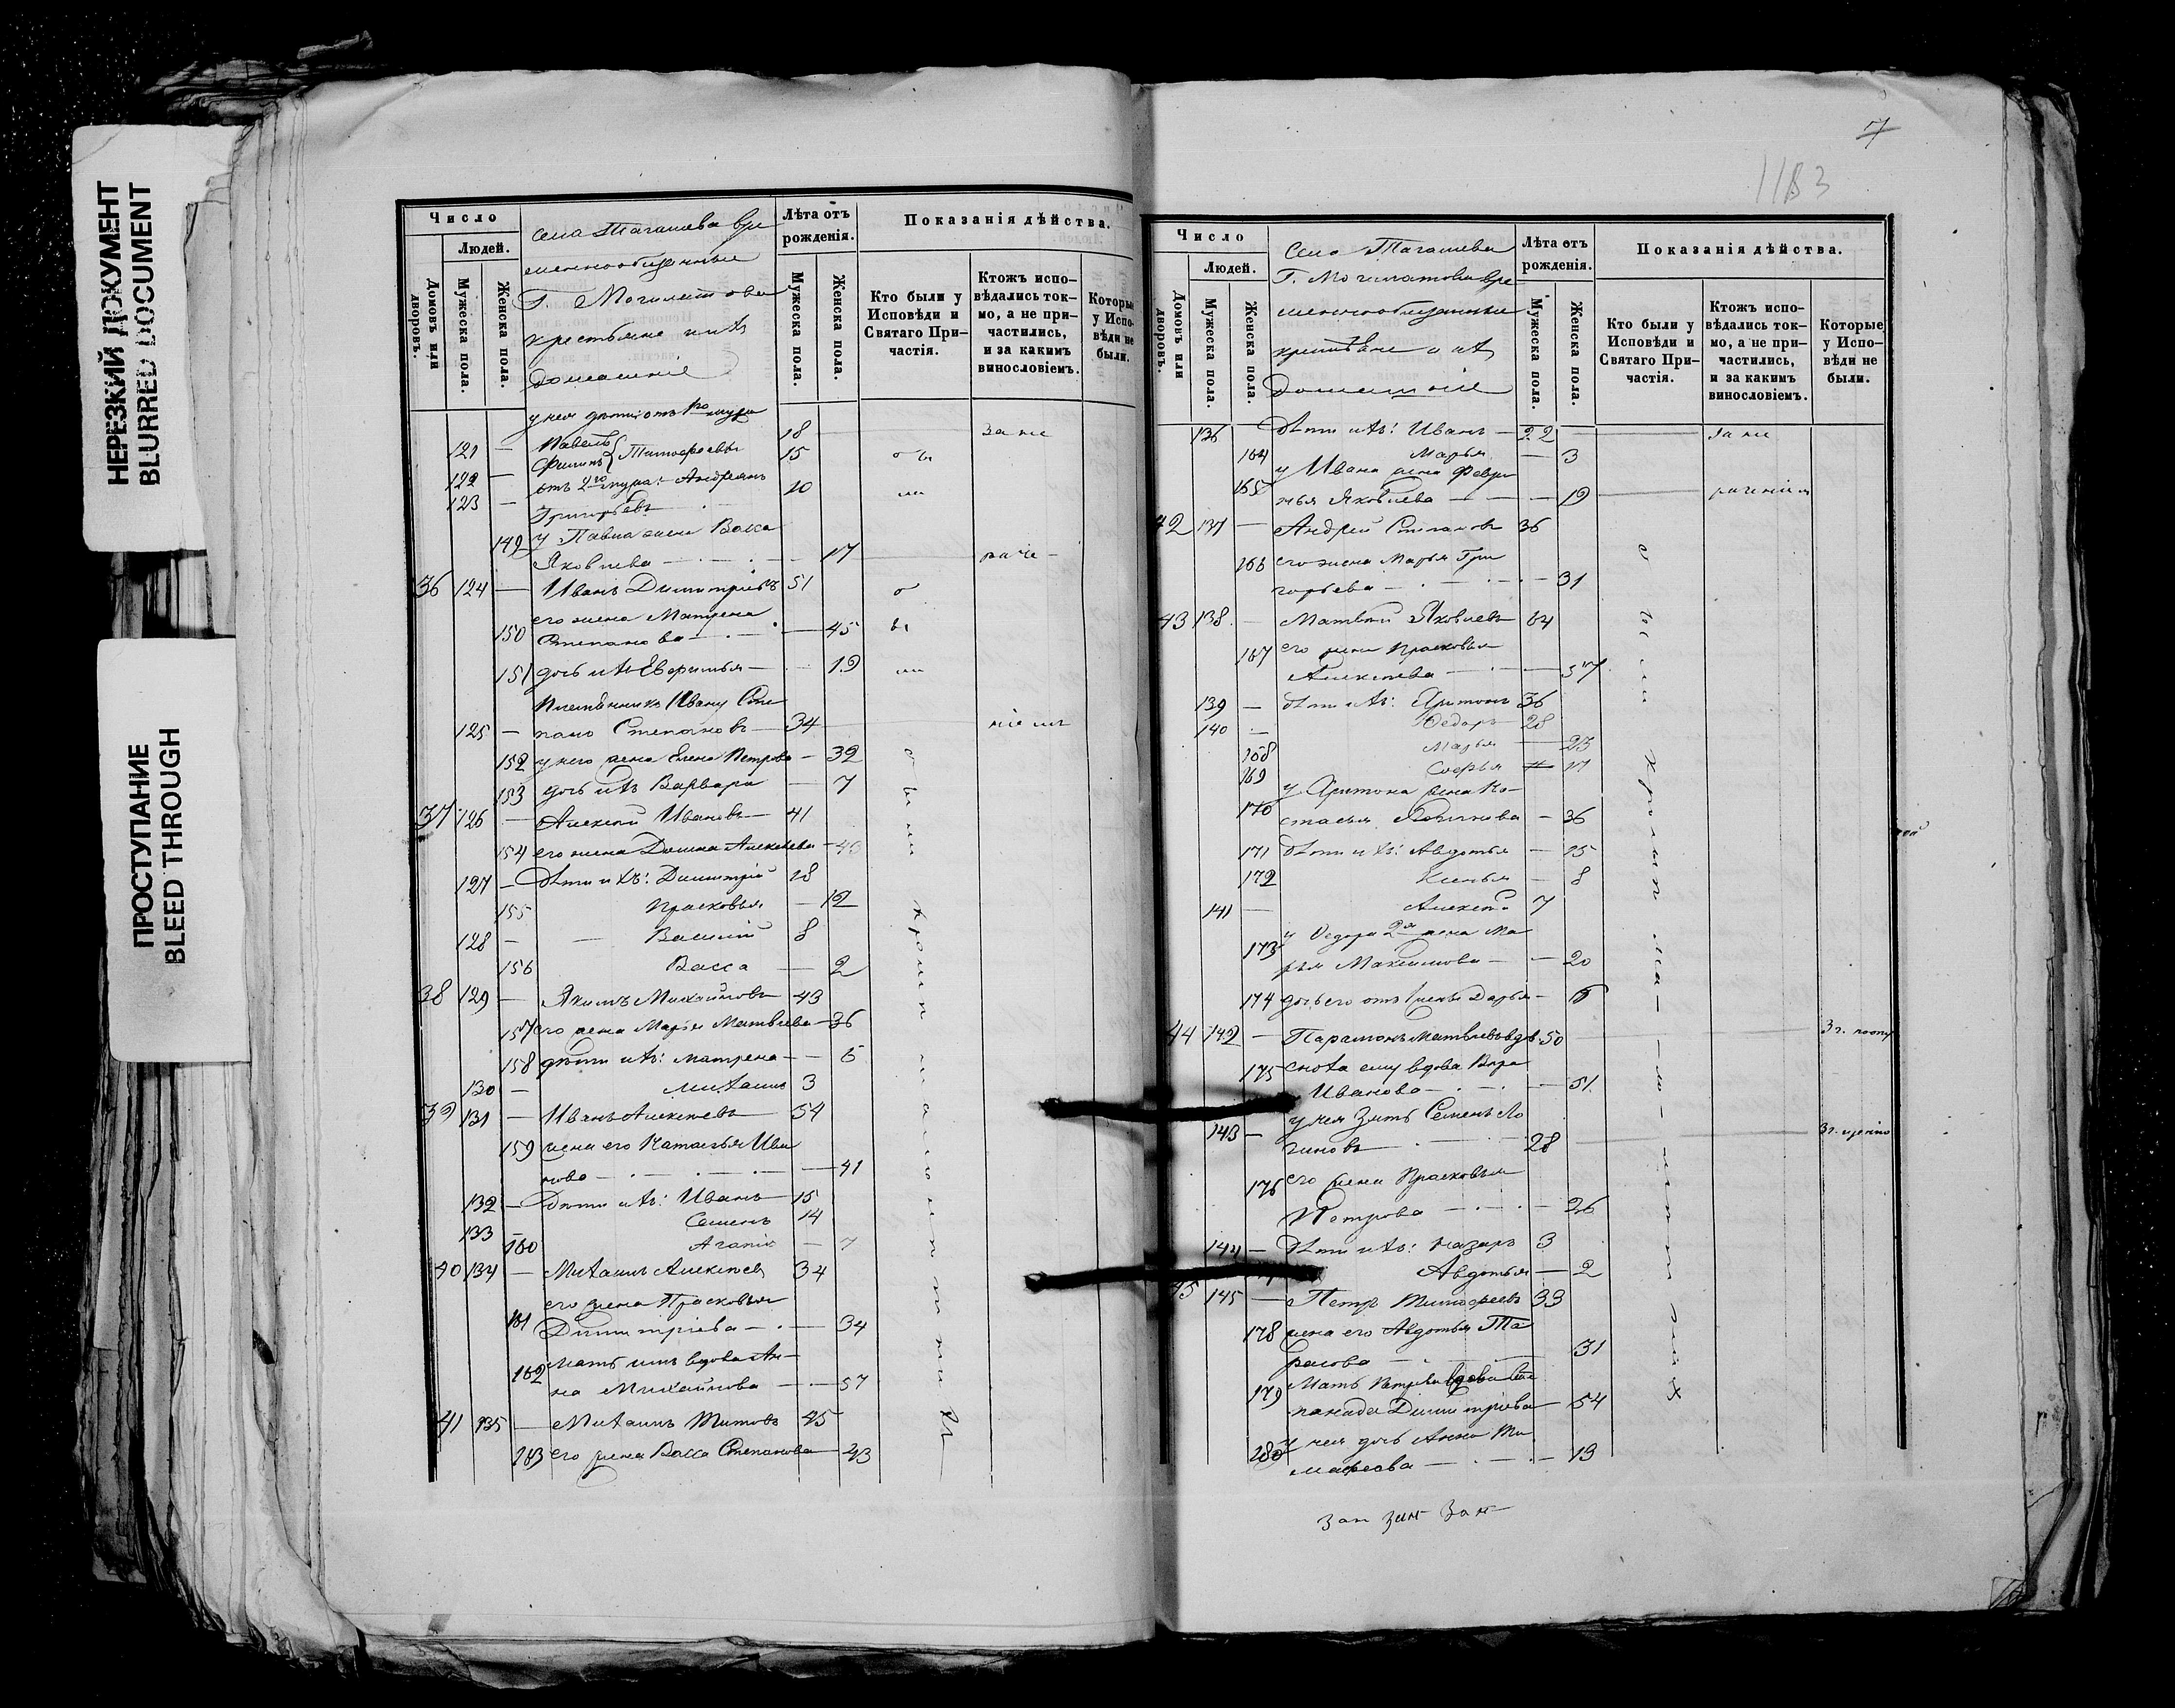 НЕРЕЗКИЙ ДОКУМЕНТ
BLURRED DOCUMENT
ПРОСТУПАНИЕ
BLEED THROUGH
Число
Людей.
Домовъ или дворовъ.
Мужеска пола.
Женска пола.
села Тагашева вре
меннообязанные
Г. Могилатова
крестьяне и ихъ
домашніе
Лѣта отъ
рожденія.
Мужеска пола.
Женска пола.
Показанія дѣйства.
Кто были у
Исповѣди и
Святаго При-
частія.
Ктожъ испо-
вѣдались ток-
мо, а не при-
частились,
и за какимъ
винословіемъ.
Которые
у Испо-
вѣди не
были.
у нея дѣти отъ 1го мужа
121 — Павелъ 18 за не
122 — Филипъ Тимофеевы 15 бы
123 — отъ 2го мужа: Андреянъ
Григорьевъ 10 ли
149 у Павла жена Васса
Яковлева — 17 раче-
36 124 — Иванъ Димитріевъ 51 о
150 его жена Матрена
Степанова — 45 бы
151 дочь ихъ Евфимья — 19 ли
Племянникъ Ивану Сте
125 — панъ Степановъ — 34 ніемъ
152 у него жена Елена Петрова — 32
153 дочь ихъ Варвара — 7
37 126 — Алексей Ивановъ — 41
154 его жена Домна Алексеева — 43
127 — Дѣти ихъ: Димитрій 18
155 Прасковья — 12
128 — Василій 8
156 Васса — 2
38 129 — Якимъ Михайловъ 43
157 его жена Марья Матвѣева — 36
158 дѣти ихъ: Матрена — 6
130 — Михаилъ 3
39 131 — Иванъ Алексѣевъ 54
159 жена его Наталья Ива
нова — 41
132 — Дѣти ихъ: Иванъ 15
133 — Семенъ 14
160 Агапія — 7
40 134 — Михаилъ Алексѣевъ 34
161 его жена Прасковья
Димитріева — 34
162 Мать имъ вдова Ан-
на Михайлова — 57
41 135 — Михаилъ Титовъ 45
163 его жена Васса Степанова — 43
были крым
7
1183
Число
Людей.
Домовъ или дворовъ.
Мужеска пола.
Женска пола.
Село Тагашева
Г. Могилатова вре-
меннообязанные
крестьяне и ихъ
домашніе
Лѣта отъ
рожденія.
Мужеска пола.
Женска пола.
Показанія дѣйства.
Кто были у
Исповѣди и
Святаго При-
частія.
Ктожъ испо-
вѣдались ток-
мо, а не при-
частились,
и за какимъ
винословіемъ.
Которые
у Испо-
вѣди не
были.
136 Дѣти ихъ: Иванъ — 22 за не
164 Марья — 3
165 у Ивана жена Февро
нья Яковлева — 19 раченіем
42 137 — Андрей Степановъ 36
166 его жена Марья Гри
горьева — 31
43 138 — Матвѣй Яковлевъ 64
167 его жена Прасковья
Алексѣева — 57
139 — Дѣти ихъ: Харитонъ 36
140 — Ѳедоръ 28
168 Марья — 23
169 Софья — 17
170 у Харитона жена На-
стасья Логинова — 36
171 Дѣти ихъ: Авдотья — 15
172 Ксенья — 8
141 — Алексѣй 7
173 у Ѳедора 2я жена Ма
рья Максимова — 20
174 дочь его отъ 1 жены Дарья — 6
44 142 — Парамонъ Матвѣевъ вдв. 50
175 Сноха ему вдова Вѣра
Иванова — 51
143 — у нея зять Семенъ Ло
гиновъ — 28
176 его жена Прасковья
Петрова — 26
144 — Дѣти ихъ: Назаръ 3
Авдотья — 2
45 145 — Петръ Тимофеевъ 33
178 жена его Авдотья Та
расова — 31
179 Мать Петрова вдова Сте
панида Димитріева — 54
180 у нея дочь Анна Ти
мофеева — 19
были крым
зап зап зап